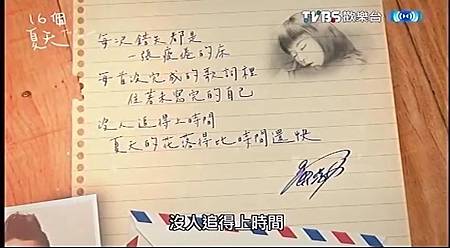 16個
夏天
TVBS歡樂台
每次錯失都是
一張疲倦的床
每首沒完成的歌詞裡
住著未寫完的自己
沒人追得上時間
夏天的花落得比時間還快
沒人追得上時間